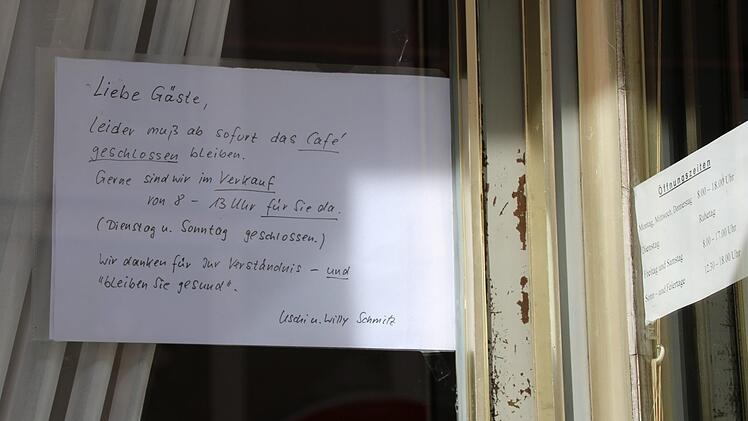 Liebe Gäste,
leider muß ab sofort das Café
geschlossen bleiben.
Gerne sind wir im Verkauf
von 8 - 13 Uhr für Sie da.
(Dienstag u. Sonntag geschlossen.)
Wir danken für Ihr Verständnis - und
"bleiben Sie gesund".
Uschi u. Willy Schmitz
Öffnungszeiten
Montag, Mittwoch, Donnerstag 8.00 - 18.00 Uhr
Dienstag Ruhetag
Freitag und Samstag 8.00 - 17.00 Uhr
Sonn- und Feiertage 12.30 - 18.00 Uhr